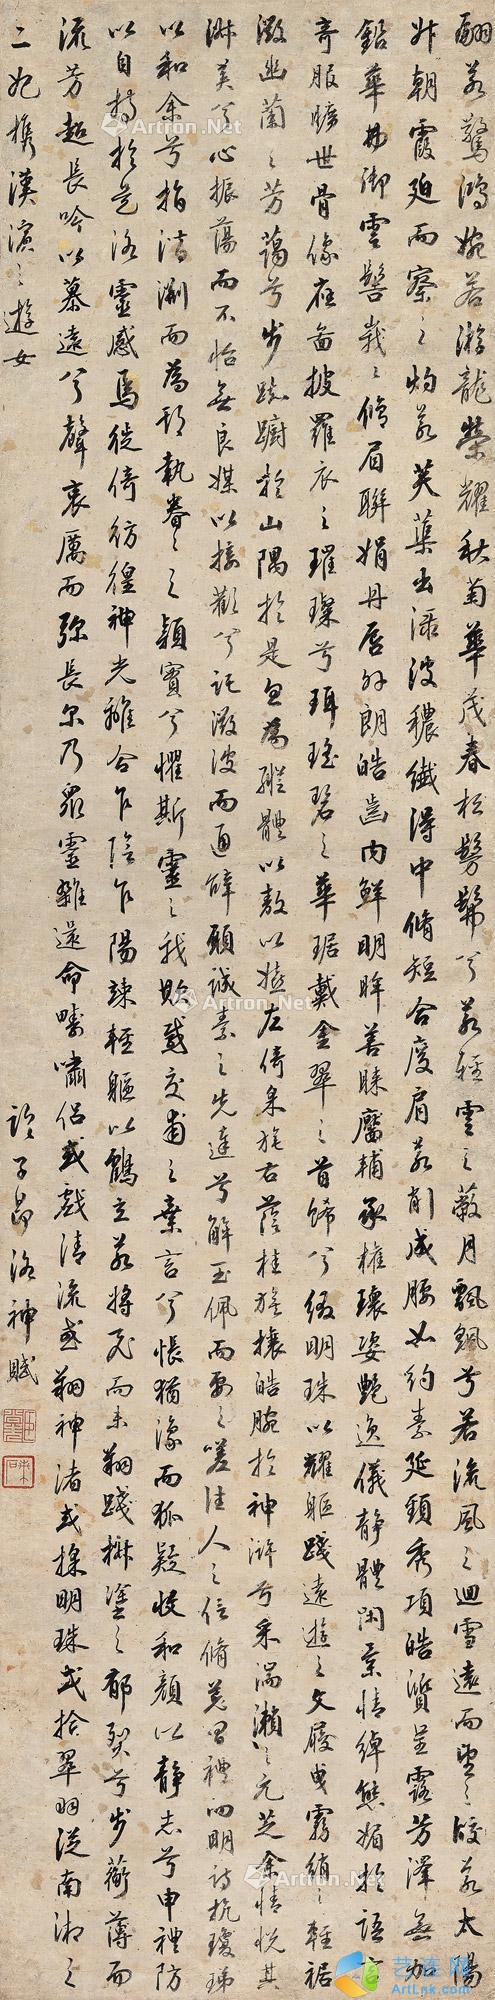 翩若驚鴻婉若游龍榮耀秋菊華茂春松髣髴兮若輕雲之蔽月飄飖兮若流風之迴雪遠而望之皎若太陽
升朝霞迫而察之灼若芙蕖出淥波穠纖得中脩短合度肩若削成腰如約素延頸秀項皓質呈露芳澤無加
鉛華弗御雲髻峩峩脩眉聯娟丹唇外朗皓齒內鮮明眸善睞靨輔承權瓌姿艷逸儀靜體閑柔情綽態媚於語言
奇服曠世骨像應圖披羅衣之璀璨兮珥瑤碧之華琚戴金翠之首飾兮綴明珠以耀軀踐遠遊之文履曳霧綃之輕裾
微幽蘭之芳藹兮步踟躕於山隅於是忽焉縱體以敖以嬉左倚采旄右蔭桂旗攘皓腕於神滸兮采湍瀨之元芝余情悅其
淑美兮心振蕩而不怡無良媒以接歡兮託微波而通辭願誠素之先達兮解玉佩而要之嗟佳人之信脩羌習禮而明詩抗瓊珶
以和余兮指潛淵而為期執眷眷之穎實兮懼斯靈之我欺感交甫之棄言兮悵猶豫而狐疑收和顏以靜志兮申禮防
以自持於是洛靈感焉徙倚彷徨神光離合乍陰乍陽竦輕軀以鶴立若將飛而未翔踐椒塗之郁烈兮步蘅薄而
流芳超長吟以慕遠兮聲哀厲而弥長尒乃眾靈雜遝命疇嘯侶或戲清流或翔神渚或採明珠或拾翠羽從南湘之
二妃攜漢濱之遊女
子昂洛神賦
Artron.Net
Artron.Net
Artron.Net
Artron.Net
Artron.Net
艺连网
ArtLnk.com